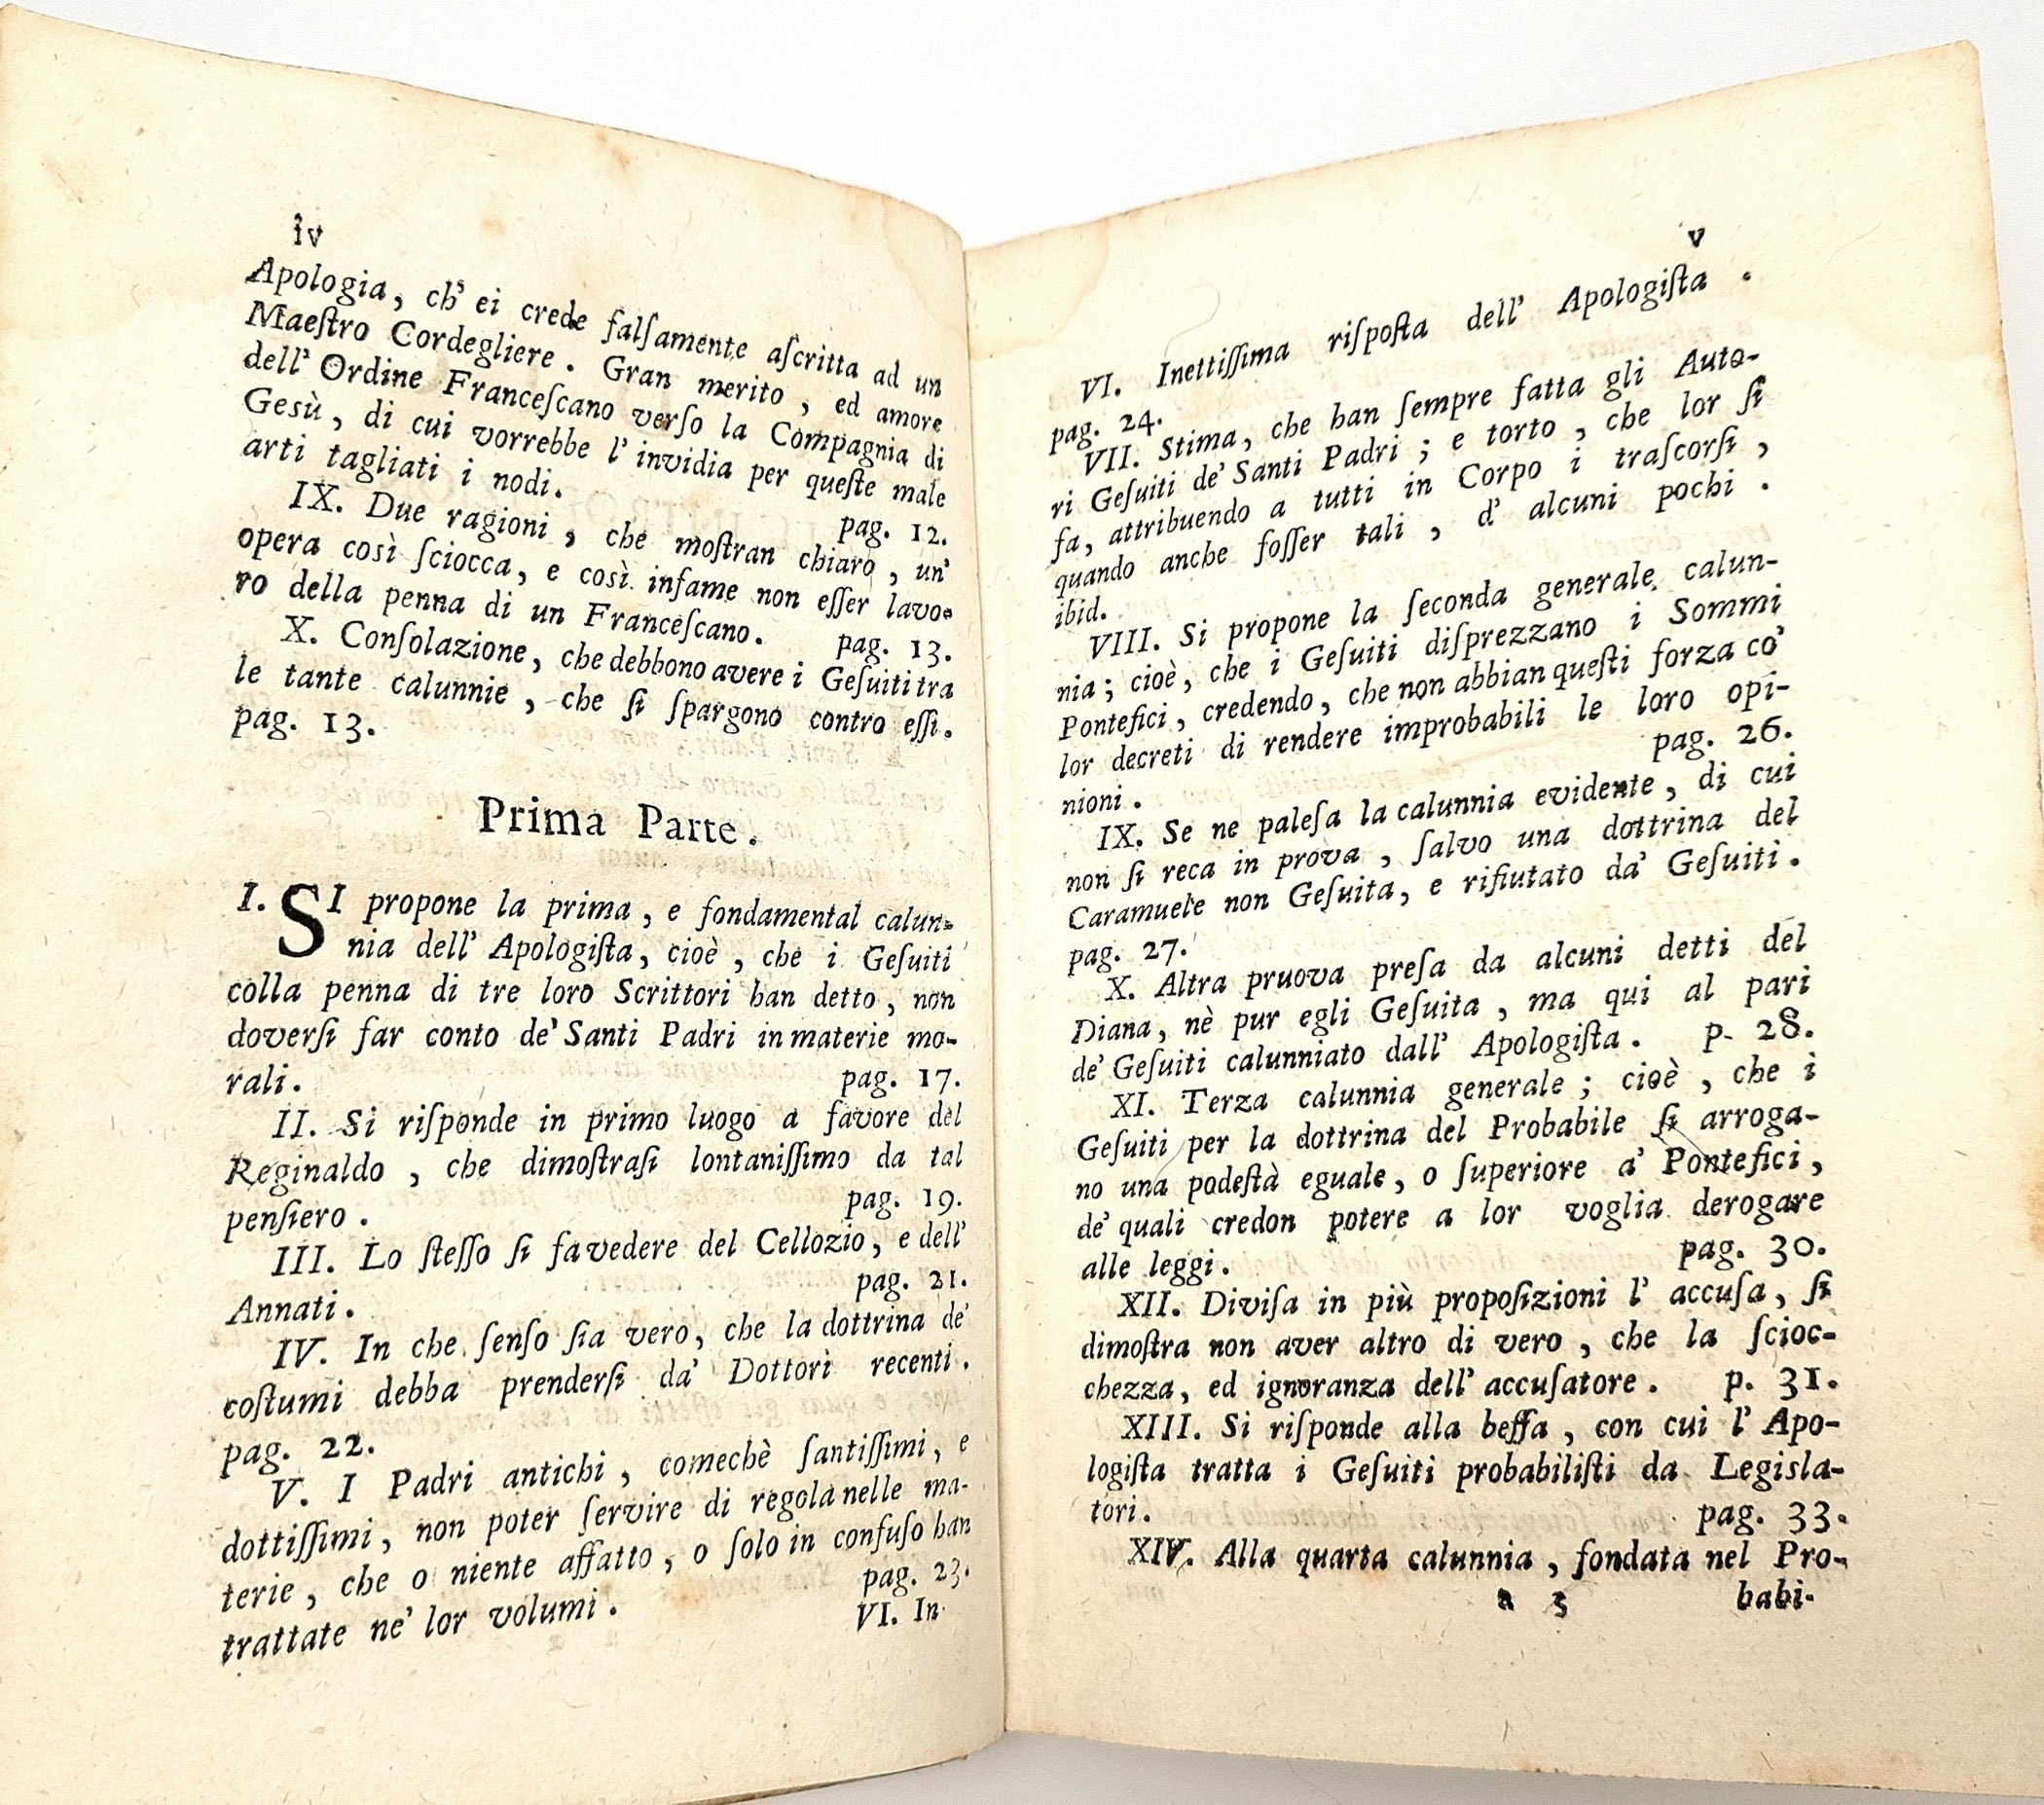 iv
Apologia, ch' ei crede falſamente aſcritta ad un
Maeſtro Cordegliere. Gran merito, ed amore
dell' Ordine Franceſcano verſo la Compagnia di
Gesù, di cui vorrebbe l' invidia per queſte male
arti tagliati i nodi. pag. 12.
IX. Due ragioni, che moſtran chiaro, un'
opera così ſciocca, e così infame non eſſer lavo-
ro della penna di un Franceſcano. pag. 13.
X. Conſolazione, che debbono avere i Geſuiti tra
le tante calunnie, che ſi ſpargono contro eſſi.
pag. 13.
Prima Parte.
I. SI propone la prima, e fondamental calun-
nia dell' Apologiſta, cioè, che i Geſuiti
colla penna di tre loro Scrittori han detto, non
doverſi far conto de' Santi Padri in materie mo-
rali. pag. 17.
II. Si riſponde in primo luogo a favore del
Reginaldo, che dimoſtraſi lontaniſſimo da tal
penſiero. pag. 19.
III. Lo ſteſſo ſi fa vedere del Cellozio, e dell'
Annati. pag. 21.
IV. In che ſenſo ſia vero, che la dottrina de'
coſtumi debba prenderſi da' Dottori recenti.
pag. 22.
V. I Padri antichi, comechè ſantiſſimi, e
dottiſſimi, non poter ſervire di regola nelle ma-
terie, che o niente affatto, o ſolo in confuſo han
trattate ne' lor volumi. pag. 23.
VI. In-
v
VI. Inettiſſima riſpoſta dell' Apologiſta.
pag. 24.
VII. Stima, che han ſempre fatta gli Auto-
ri Geſuiti de' Santi Padri; e torto, che lor ſi
fa, attribuendo a tutti in Corpo i traſcorſi,
quando anche foſſer tali, d' alcuni pochi.
ibid.
VIII. Si propone la ſeconda generale calun-
nia; cioè, che i Geſuiti diſprezzano i Sommi
Pontefici, credendo, che non abbian queſti forza co'
lor decreti di rendere improbabili le loro opi-
nioni. pag. 26.
IX. Se ne paleſa la calunnia evidente, di cui
non ſi reca in prova, ſalvo una dottrina del
Caramuele non Geſuita, e rifiutato da' Geſuiti.
pag. 27.
X. Altra pruova preſa da alcuni detti del
Diana, nè pur egli Geſuita, ma qui al pari
de' Geſuiti calunniato dall' Apologiſta. p. 28.
XI. Terza calunnia generale; cioè, che i
Geſuiti per la dottrina del Probabile ſi arroga-
no una podeſtà eguale, o ſuperiore a' Pontefici,
de' quali credon potere a lor voglia derogare
alle leggi. pag. 30.
XII. Diviſa in più propoſizioni l' accuſa, ſi
dimoſtra non aver altro di vero, che la ſcioc-
chezza, ed ignoranza dell' accuſatore. p. 31.
XIII. Si riſponde alla beffa, con cui l' Apo-
logiſta tratta i Geſuiti probabiliſti da Legisla-
tori. pag. 33.
XIV. Alla quarta calunnia, fondata nel Pro-
a 3 babi-